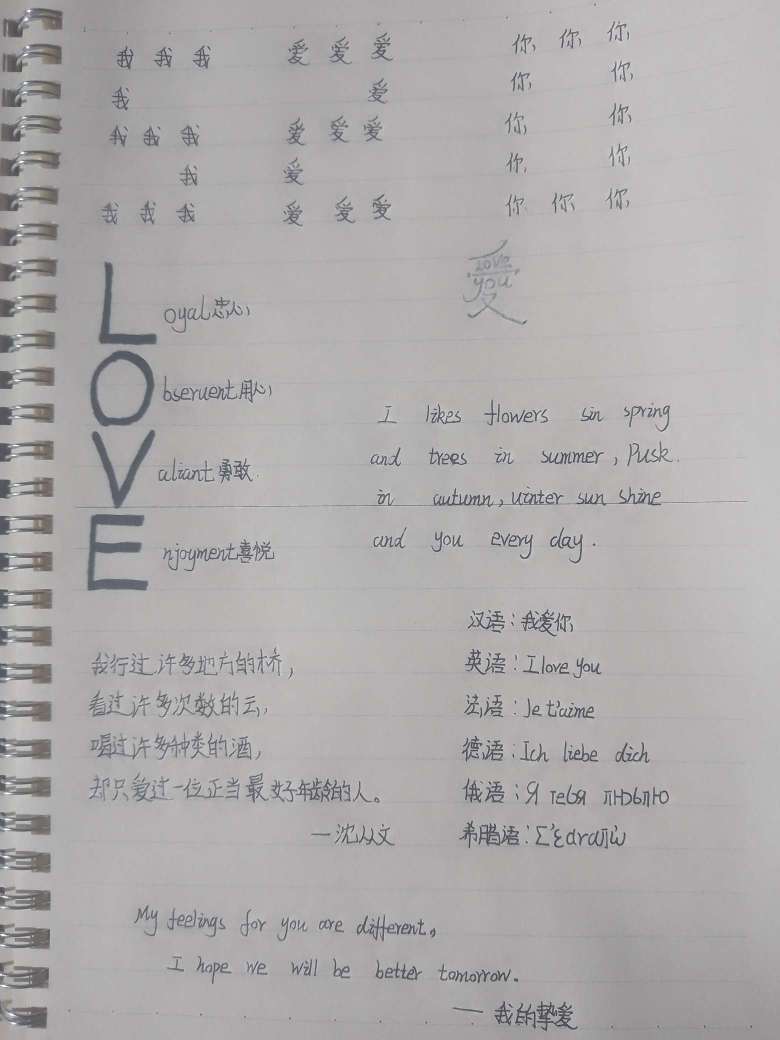 我 我 我 爱 爱 爱 你 你 你
我 爱 你 你
我 我 我 爱 爱 爱 你 你
我 爱 你 你
我 我 我 爱 爱 爱 你 你 你
Love
you
Loyal忠心
Observent用心
Valiant勇敢
Enjoyment喜悦
I likes flowers sin spring
and trees in summer, Pusk.
in autumn, winter sun shine
and you every day.
我行过许多地方的桥，
看过许多次数的云，
喝过许多种类的酒，
却只爱过一位正当最好年龄的人。
—沈从文
汉语：我爱你
英语：I love you
法语：Je t'aime
德语：Ich liebe dich
俄语：Я тебя
希腊语：
My feelings for you are different,
I hope we will be better tomorrow.
— 我的挚爱